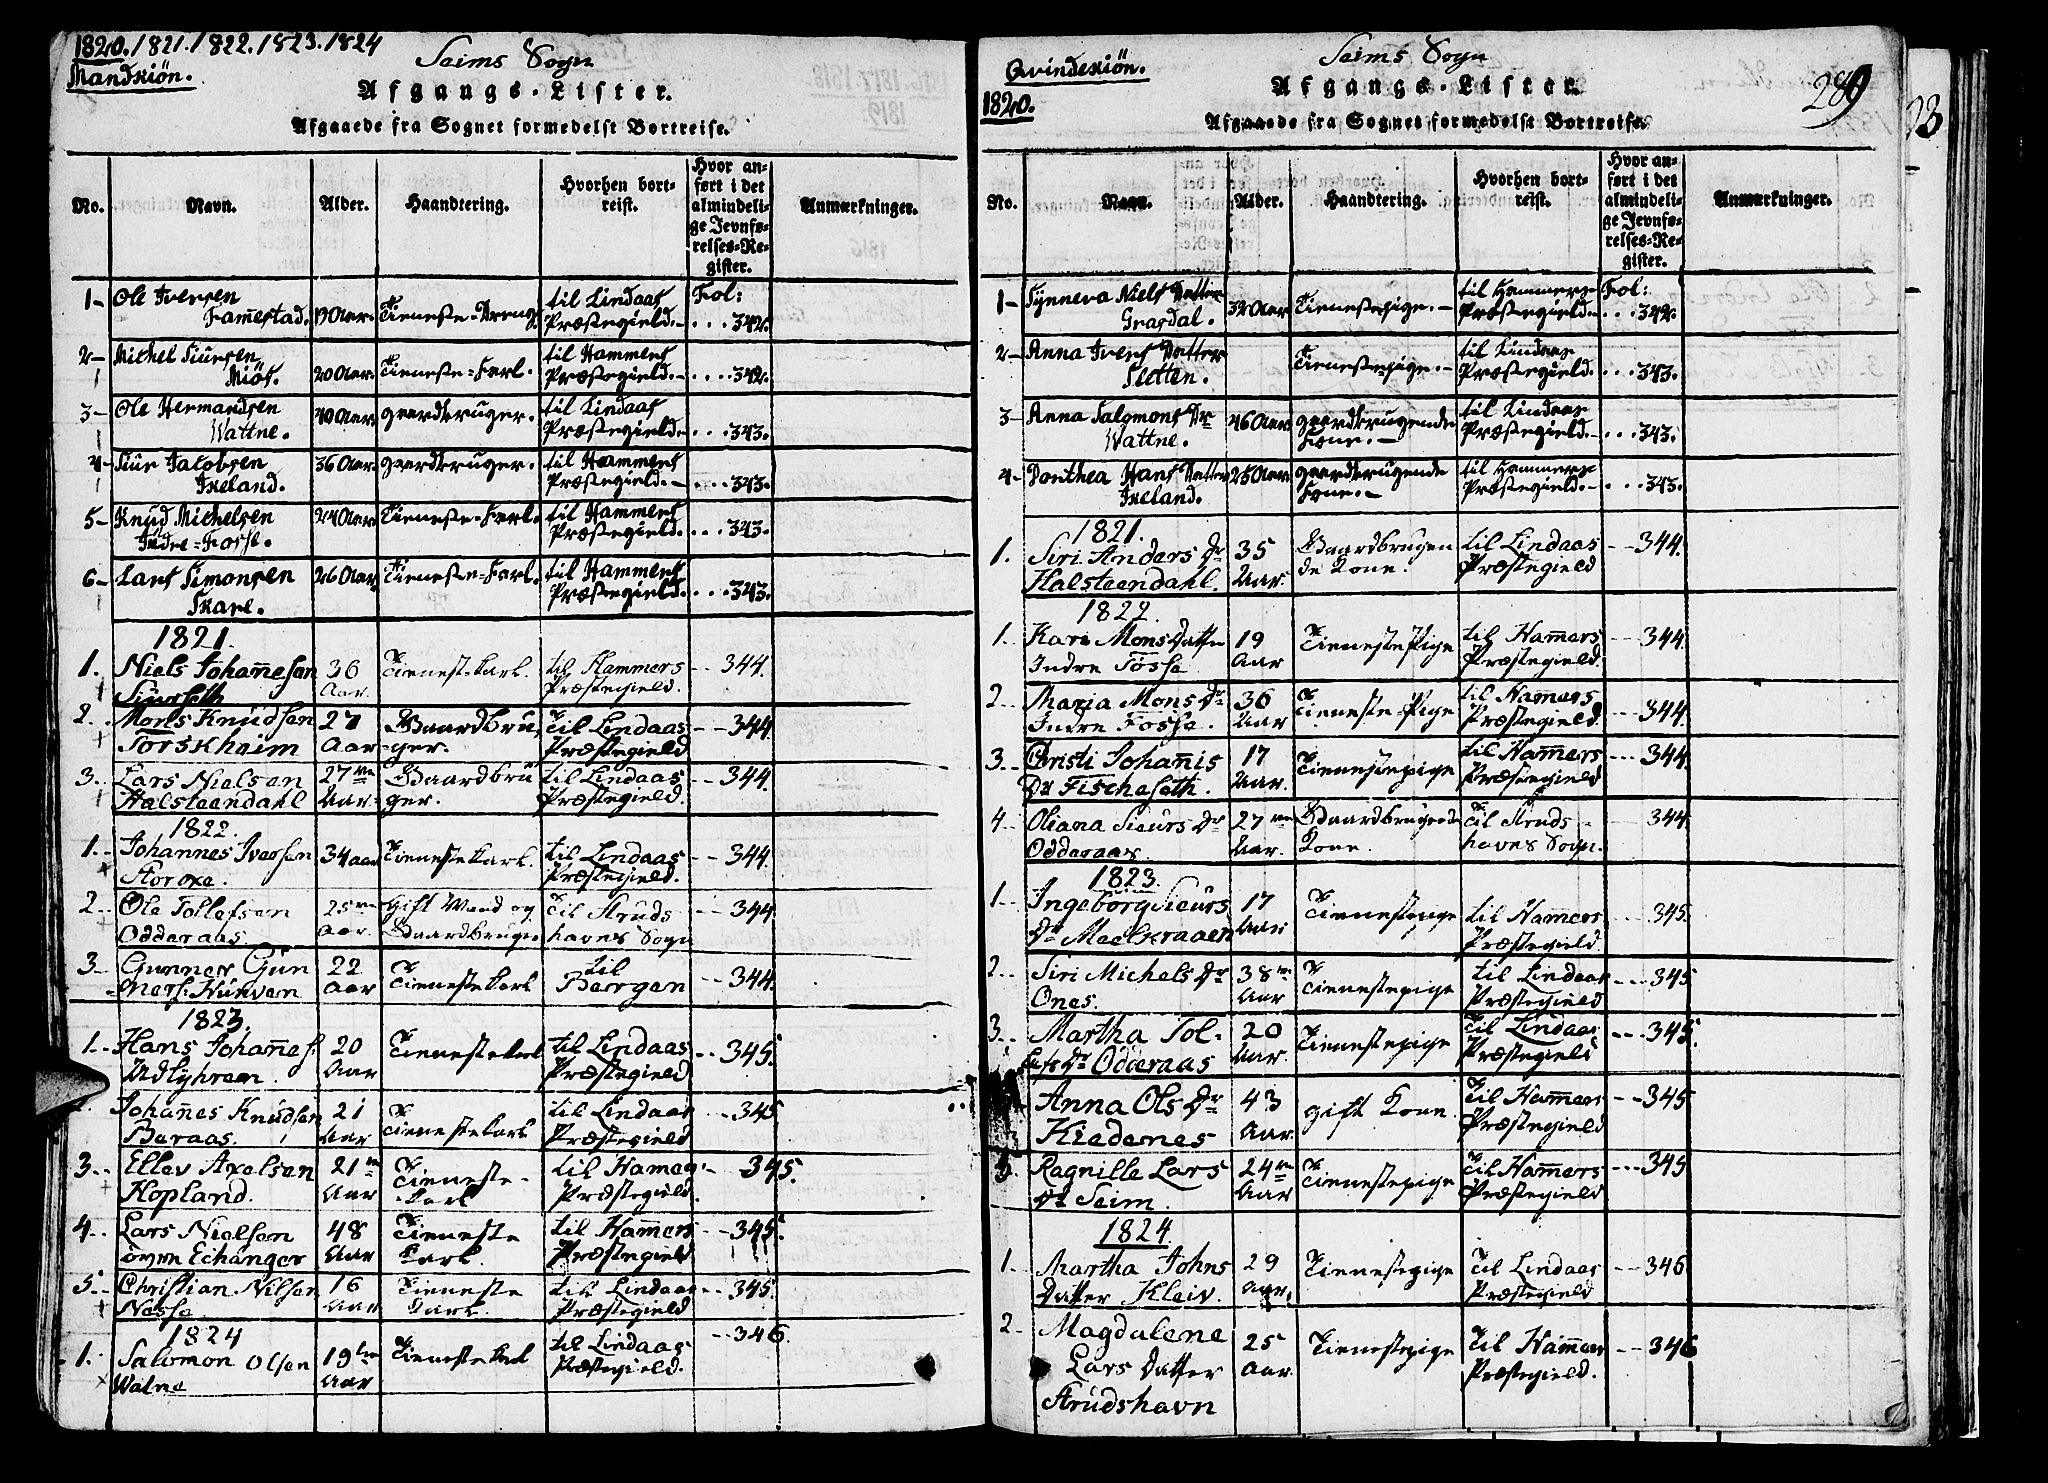 1820. 1821. 1822. 1823. 1824
Mandkiön.
Seims Sogn
Afgangs-Lister.
Afgaaede fra Sognet formedelst Bortreise.
No. Navn. Alder. Haandtering. Hvorhen bortreist. Hvor anført i det almindelige Jevnførelses-Register. Anmærkninger.
1- Ole Iversen 19 Aar. Tieneste-Dreng til Lindaas Fol:
Præstegield.- ...342.
2- Michel Siursen 20 Aar. Tieneste-Karl. til Hammers
Miös. Præstegield.- ....342.
3- Ole Hermandsen 40 Aar gaardbruger. til Lindaas
Wattne. Præstegield. ...343.
4- Siur Jacobsen 36 Aar. gaardbruger. til Hammers
Præstegield.- ....343.
5- Knud Michelsen 24 Aar Tieneste-Karl. til Hammers
Indre-Fosse. Præstegield. ...343.
6- Lars Simonsen 26 Aar Tieneste-Karl. til Hammers
Skare. Præstegield. ...343.
1821.
1. Niels Johañesen 36 Tieneste-karl. til Hammers -- 344.
Siurseth Aar. Præstegield.
2. Mons Knudsen 27 Gaardbru, Til Lindaas -- 344.
Torskheim Aar -ger. Præstegield
3. Lars Nielsen 27 Gaardbru til Lindaas -- 344.
Halsteendahl Aar. ger. Præstegield.
1822.
1. Johannes Iversen 34 aar Tieneste karl til Lindaas -- 344.
Præstegield.
2.. Ole Tollefsen 25 Gift Mand og Til Struds -- 344
Odderaas aar. Gaardbruger havns Sogn
3- Gunner Gun 22 Tieneste karl til -- 344.
ners: Aar Bergen
1823.
1.. Hans Johañes: 20 Tieneste karl til Lindaas -- 345.
Aar Præstegield
2. Johañes Knudsen 21 Tieneste karl til Lindaas -- 345.
Beraas. Aar Præstegield
3.. Ellev Axelsen 21 Tieneste- til 345.
Hopland. Aar -karl Præstegield.
4.. Lars Nielsen 48 Tieneste til Hammers -- 345.
Echanger Aar Karl. Præstegield
5.. Christian Nilsen 16 Tieneste til Lindaas -- 345.
Nesse Aar Karl. Præstegield
1824
1. Salomon Olsen 19 Tieneste karl til Lindaas -- 346.
Watne Aar Præstegield.
Qvindekiön.
1820.
Seims Sogn
289
Afgangs-Lister.
Afgaaede fra Sognet formedelst Bortreise.
No. Navn. Alder. Haandtering. Hvorhen bortreist. Hvor anført i det almindelige Jevnførelses-Register. Anmærkninger.
1- Synneva Niels Datter 32 Aar Tienestepige.- til Hammers Fol:
Præstegield.- ...342.
2- Anna Ivers Datter Tienestepige.- til Lindaas
Sletten. Præstegield. ...343.
3- Anna Salomons Dr 46 Aar gaardbrugende til Lindaas
Wattne. Kone.- Præstegield.- ...343.
4- Dorthea Hans Datter 25 Aar gaardbrugende til Hammers
Kone.- Præstegield.- ...343.
1821.
1. Siri Anders Dr 35 Gaardbrugen til Lindaas -- 344.
Halsteendahl. Aar. de Kone. Præstegield
1822.
1.. Kari Mons Datter 19 Tieneste Pige til Hammers --- 344
Indre Fosse Aar Præstegield.
2.. Maria Mons Dr 36 Tieneste-Pige til Hamers -- 344.
Indre Fosse. Aar Præstegield.
3.. Christi Johañis 17 Tienestepige til Hammers -- 344.
Dr Fischeseth. Aar. Præstegield
4.. Oliana Sieurs Dr 27 Gaardbrugende Til Struds - 344
Odderaas. Aar. Kone. havns Sogn.
1823.
1.. Ingeborg Sieurs 17 Tienestepige til Hammers --- 345.
Dr Aar Præstegield.
2.. Siri Michels Dr 38 Tienestepige til Lindaas --- 345
Ones. Aar Præstegield
3. Martha Tol- 20 Tienestepige Til Lindaas --- 345.
lefs Dr Odderaas Aar. Præstegield
Anna Ols Dr 43 gift Kone. Til Hammers -- 345
Kiedenes Aar. Præstegield
5. Ragnille Lars 24 Tienestepige Til Hammers --- 345
Dr Seim. Aar Præstegield
1824.
1. Martha Johns 29 Tienestepige Til Lindaas -- 346
Datter Kleiv. Aar. Præstegield
2- Magdalene 25 Tienestepige Til Hammers -- 346
Lars Datter Aar. Præstegield.
Strudshavn